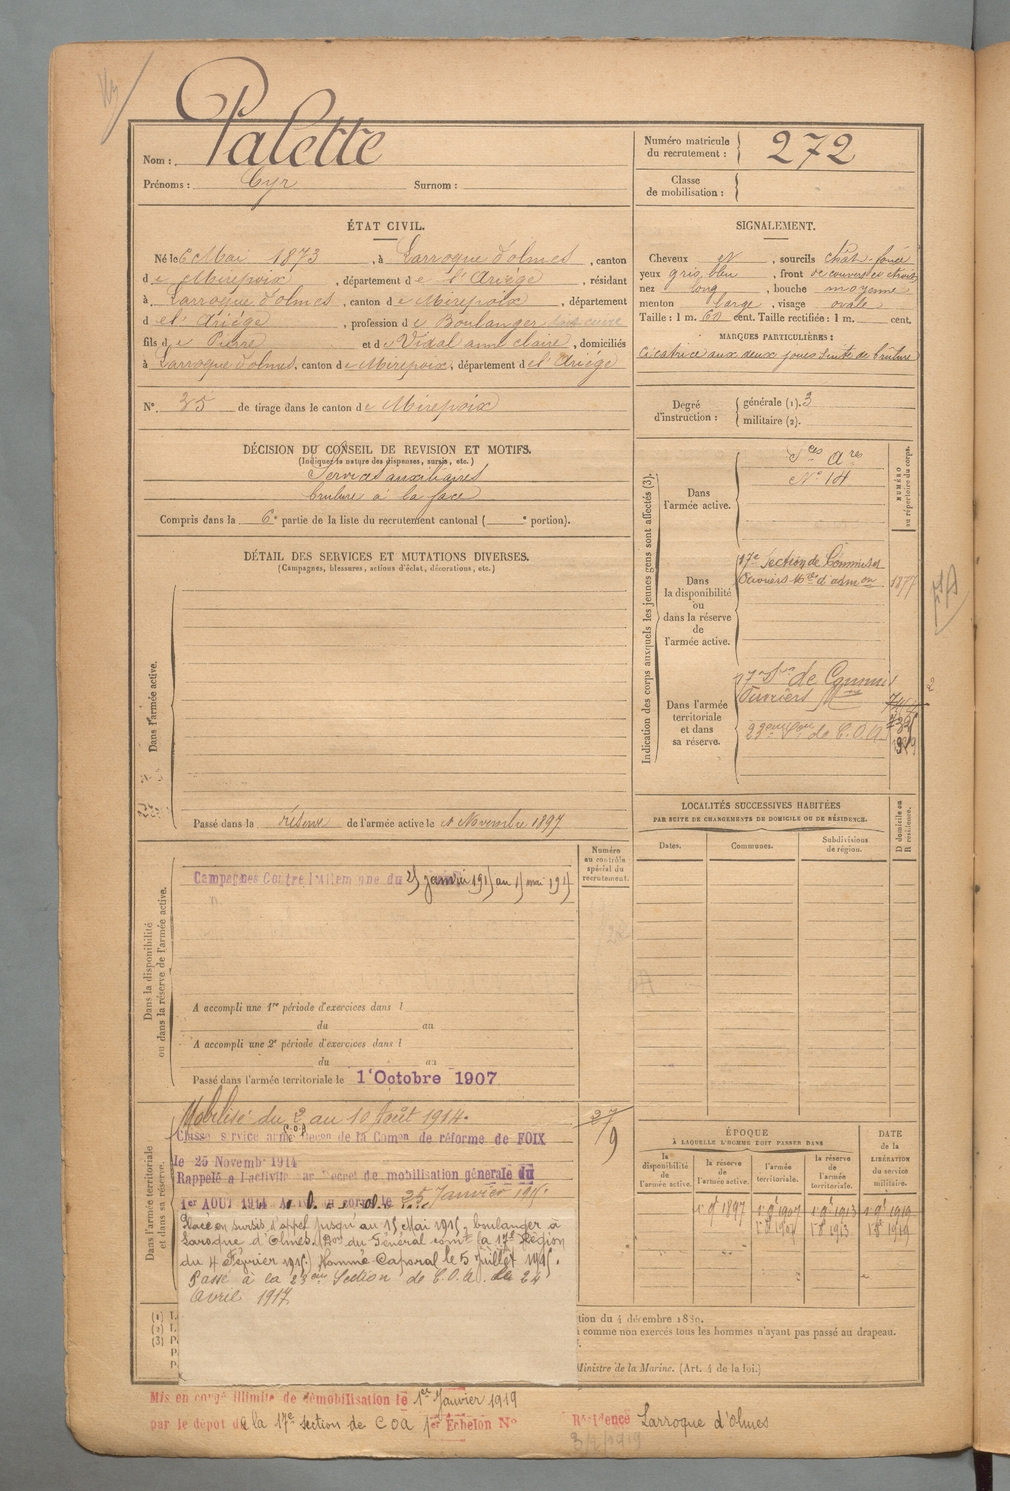 Nom : Palette
Prénoms : Cyr Surnom :
Numéro matricule du recrutement : 272
Classe de mobilisation :
ÉTAT CIVIL.
Né le 6 Mai 1873, à Larroque d'olmes, canton
de Mirepoix, département de l'Ariége, résidant
à Larroque d'olmes, canton de Mirepoix, département
d el' Ariége, profession de Boulanger
fils de Pierre et de Vidal anne claire, domiciliés
à Larroque d'olmes, canton de Mirepoix, département de l'Ariége
N° 35 de tirage dans le canton de Mirepoix
SIGNALEMENT.
Cheveux et, sourcils chât-foncé
yeux gris bleu, front
nez long, bouche moyenne
menton large, visage ovale
Taille : 1 m. 60 cent. Taille rectifiée : 1 m. cent.
MARQUES PARTICULIÈRES :
Cicatrice aux deux joues suite de brulure
Degré d'instruction : générale (1). 3
militaire (2).
DÉCISION DU CONSEIL DE REVISION ET MOTIFS.
(Indiquer la nature des dispenses, sursis, etc.)
Services auxiliaires
brulure à la face
Compris dans la 6e partie de la liste du recrutement cantonal ( e portion).
DÉTAIL DES SERVICES ET MUTATIONS DIVERSES.
(Campagnes, blessures, actions d'éclat, décorations, etc.)
Dans l'armée active.
Passé dans la réserve de l'armée active le 1 Novembre 1897
Indication des corps auxquels les jeunes gens sont affectés (3).
NUMÉRO au répertoire du corps.
Dans l'armée active.
Sces Ares
N° 14
Dans la disponibilité ou dans la réserve de l'armée active.
17e Section de Commis et
Ouvriers Mres d'admon
1877
Dans l'armée territoriale et dans sa réserve.
17e Son de Commis
Ouvriers Mres
22eme Son de C.O.A
LOCALITÉS SUCCESSIVES HABITÉES
PAR SUITE DE CHANGEMENTS DE DOMICILE OU DE RÉSIDENCE.
Dates. Communes. Subdivisions de région.
D domicile ou R résidence.
Dans la disponibilité ou dans la réserve de l'armée active.
Numéro au contrôle spécial du recrutement.
Campagnes Contre l'Allemagne du 25 janvier 1915 au 15 mai 1915
A accompli une 1re période d'exercices dans l
du au
A accompli une 2e période d'exercices dans l
du au
Passé dans l'armée territoriale le 1er Octobre 1907
Dans l'armée territoriale et dans sa réserve.
Mobilisé du 2 au 10 Août 1914.
Classé service armé Décon de la Comon de réforme de FOIX
le 25 Novembre 1914
Rappelé à l'activité par Decret de mobilisation générale du
1er AOUT 1914 au corps le 25 Janvier 1915
Placé en sursis d'appel jusqu'au 15 Mai 1915, boulanger à
Laroque d'Olmes. (Don du Général comt la 17e Région
du 4 Février 1915.) Nommé Caporal le 5 Juillet 1915.
Passé à la 23eme Section de C.O.A. le 24
Avril 1917
27/9
ÉPOQUE
A LAQUELLE L'HOMME DOIT PASSER DANS
la disponibilité de l'armée active.
la réserve de l'armée active.
l'armée territoriale.
la réserve de l'armée territoriale.
DATE de la LIBÉRATION du service militaire.
1er 9bre 1897 1907 1913 1919
(1) L
(2) L
(3) P
tion du 4 décembre 1889.
comme non exercés tous les hommes n'ayant pas passé au drapeau.
Ministre de la Marine. (Art. 4 de la loi.)
Mis en congé illimité de démobilisation le 1er Janvier 1919
par le dépot de la 17e section de COA 1er Echelon N° Résidence Larroque d'Olmes
3/2/1919